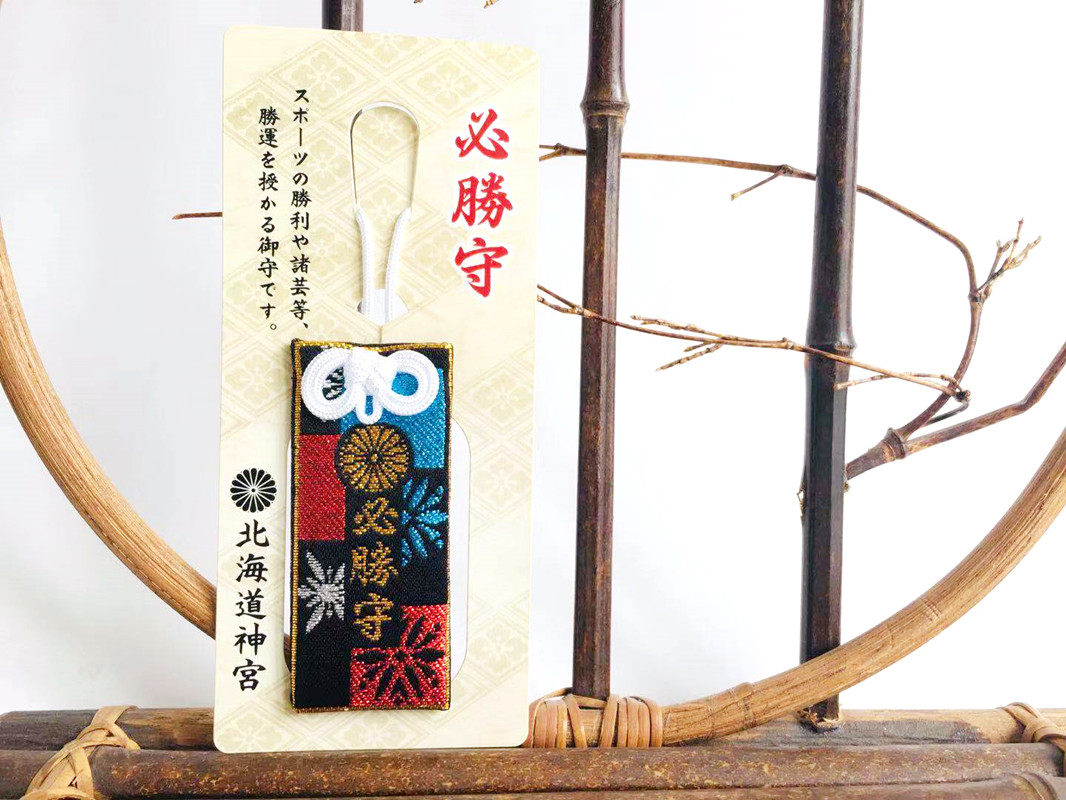 必勝守
スポーツの勝利や諸芸等、
勝運を授かる御守です。
北海道神宮
必勝守